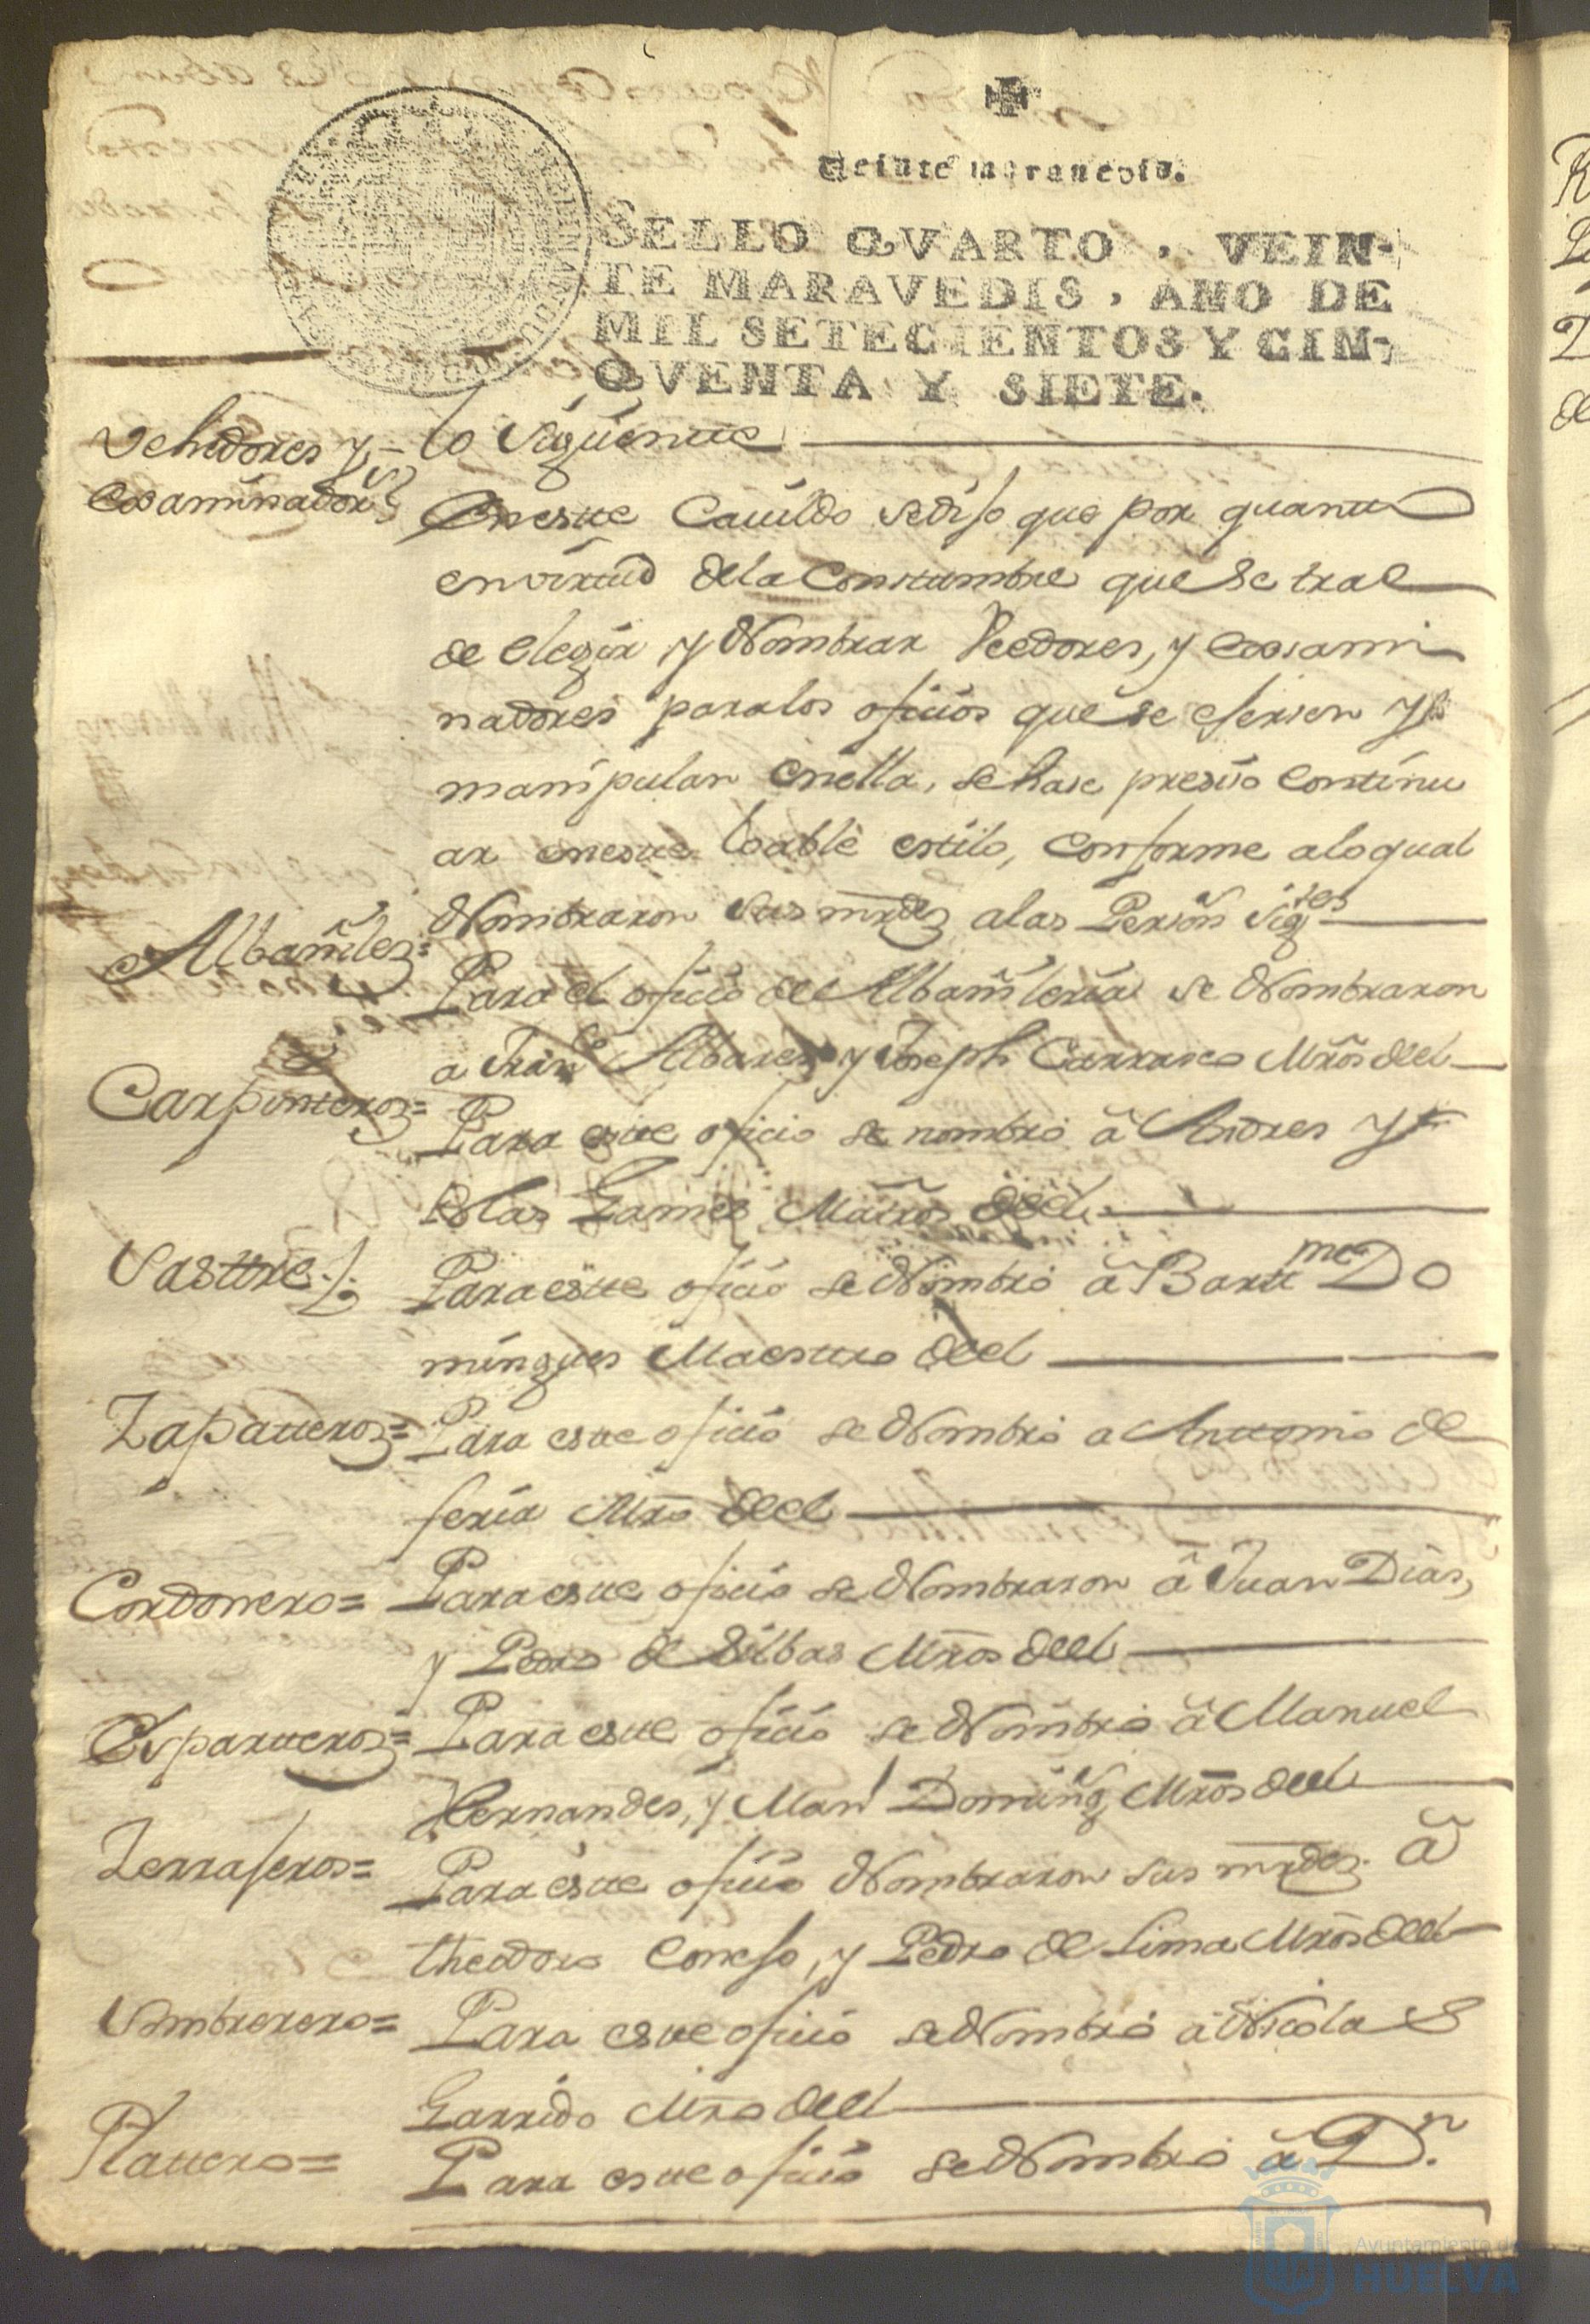 Veinte maravedis.
SELLO QVARTO, VEIN-
TE MARAVEDIS, AÑO DE
MIL SETECIENTOS Y CIN-
QVENTA Y SIETE.
Vehedores y lo siguiente
Exsaminadors
En este Cauildo se diso que por quanto
en virtud de la Constumbre que se trae
de elegir y Nombrar Veedores, y Exsami
nadores para los ofisios que se esersen y
manipulan en ella, se hase presiso continu
ar en este loable estilo, conforme a lo qual
Nombraron sus mrdes a las Person sigtes
Albañiles=
Para el ofisio de Albañileria se Nombraron
a Franco Albares y Joseph Carrasco Mros de el
Carpinteros=
Para este oficio se nombro â Andres y
Blas Gamés Maìros de el
Sastre
Para este ofisio se Nombro â Barttme Do
mingues Maestro de el
Zapatteros=
Para este ofisio se Nombro a Anttonio de
feria Mro de el
Cordonero= Para este ofisio se Nombraron â Juan Dias,
y Pedro de Silbas Mros de el
Espartteros= Para este ofisio se Nombro â Manuel
Hernandes, y Manl Doming Mros de el
Zerraferos=
Para este ofisio Nombraron sus mrdes â
theodoro Coneso, y Pedro de Lima Mros de el
Sombrerero= Para este ofisio se Nombro â Nicolas
Garrido Mro de el
Plattero=
Para este ofisio se Nombro â Dn.
Ayuntamiento de
HUELVA